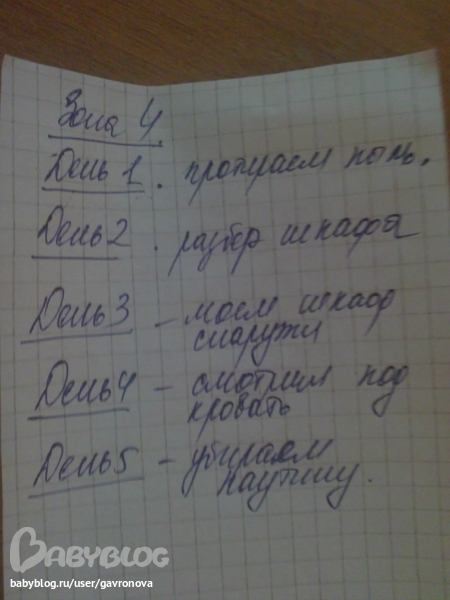 Зона 4.
День 1. протираем пыль.
День 2. разбор шкафа
День 3 - моем шкаф
снаружи
День 4 - смотрим под
кровать
День 5 - убираем
паутину.
BABYBLOG
babyblog.ru/user/gavronova